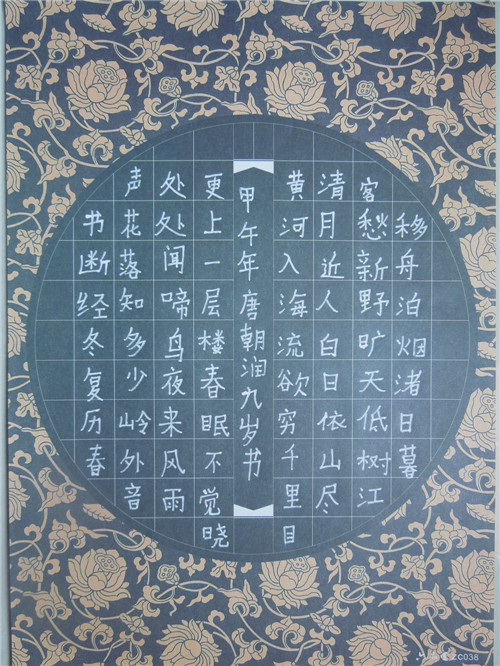 移舟泊烟渚日暮
客愁新野旷天低树江
清月近人白日依山尽
黄河入海流欲穷千里目
甲午年唐朝润九岁书
更上一层楼春眠不觉晓
处处闻啼鸟夜来风雨
声花落知多少岭外音
书断经冬复历春
ZC038